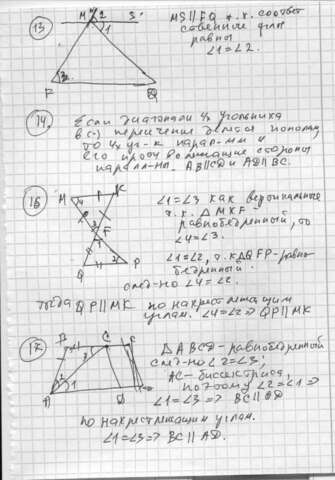 13
M 2 3
1
F 3 Q
MS||FQ т.к. соответ
ственные углы
равны
∠1=∠2.
14.
Если диагонали 4х угольника
в (·) пересечения делятся пополам,
то 4х уг-к парал-мм и
его противолежащие стороны
паралл-ны. AB||CD и AD||BC.
M K
F
Q P
∠1=∠3 как вертикальные
т.к. △MKF
равнобедренный, то
∠4=∠3.
∠1=∠2, т.к △QFP-равно
бедренный.
след-но ∠4=∠2.
Тогда QP||MK по накрестлежащим
углам. ∠4=∠2 => QP||MK
B C
A D
△ABCD-равнобедренный
след-но ∠2=∠3.
AC-биссектриса,
поэтому ∠2=∠1 =>
∠1=∠3 => BC||AD
по накрестлежащим углам.
∠1=∠3 => BC||AD.